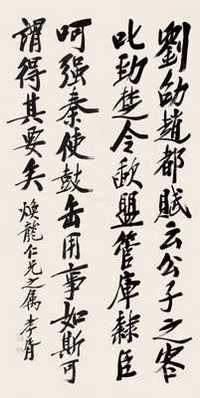 劉劭趙都賦云公子之客
叱勁楚令歃盟管庫隸臣
呵强秦使鼓缶用事如斯可
謂得其要矣 煥龍仁兄之属 李